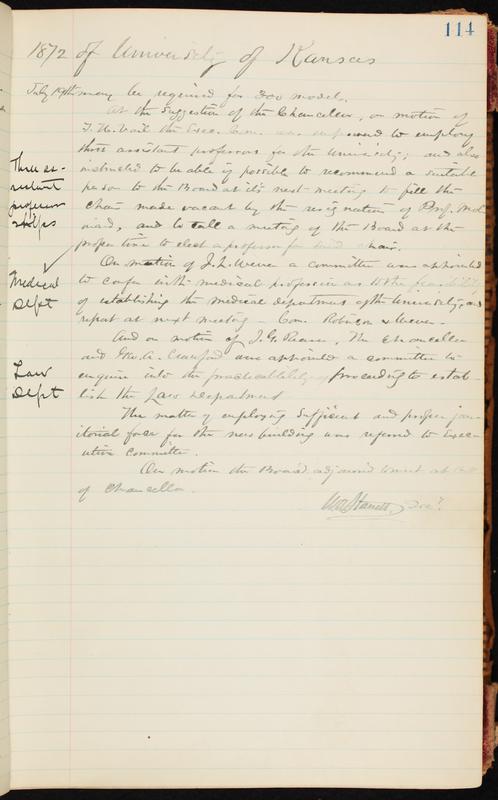 114
1872 of University of Kansas
July 19th may be required for 300 model.
At the suggestion of the Chancellor, on motion of
T. H. Vail the Exec. Com. was empowered to employ
three assistant professors for the University; and also
instructed to be able if possible to recommend a suitable
person to the Board at its next meeting to fill the
chair made vacant by the resignation of Prof.
and to call a meeting of the Board at the
proper time to elect a professor for said chair.
Three as-
sistant
professor
ships
On motion of J. L. Wever a committee was appointed
to confer with the medical profession as to the feasibility
of establishing the medical department of the University, and
report at next meeting - Com. Robinson & Wever.
Medical
Dept
And on motion of J. G. The Chancellor
and Geo. A. Crawford were appointed a committee to
enquire into the practicability of proceeding to estab-
lish the Law Department
Law
Dept
The matter of employing sufficient and proper jan-
itorial force for the new building was referred to Exec-
utive committee.
On motion the Board adjourned to meet at call
of Chancellor.
Secy.